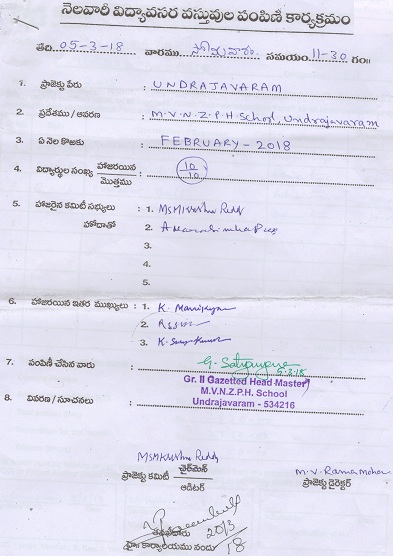 నెలవారీ విద్యావసర వస్తువుల పంపిణీ కార్యక్రమం
తేది. 05-3-18 వారము. సోమవారం సమయం. 11-30 గం॥
1. ప్రాజెక్టు పేరు : UNDRAJAVARAM
2. ప్రదేశము / ఆవరణ : M.V.N.Z.P.H School, Undrajavaram
3. ఏ నెల కొఱకు : FEBRUARY - 2018
4. విద్యార్థుల సంఖ్య హాజరయిన / మొత్తము : 10/10
5. హాజరైన కమిటీ సభ్యులు : 1. Reddy
హోదాతో 2.
3.
4.
5.
6. హాజరయిన ఇతర ముఖ్యులు : 1. K.
2.
3. K.
7. పంపిణీ చేసిన వారు : G. 5.3.18
Gr. II Gazetted Head Master
M.V.N.Z.P.H. School
8. వివరణ / సూచనలు : Undrajavaram - 534216
Reddy
ప్రాజెక్టు కమిటీ చైర్‌మెన్ / ఆడిటర్
M.V. Rama Mohan
ప్రాజెక్టు డైరెక్టర్
20/3/18
కార్యాలయము నందు